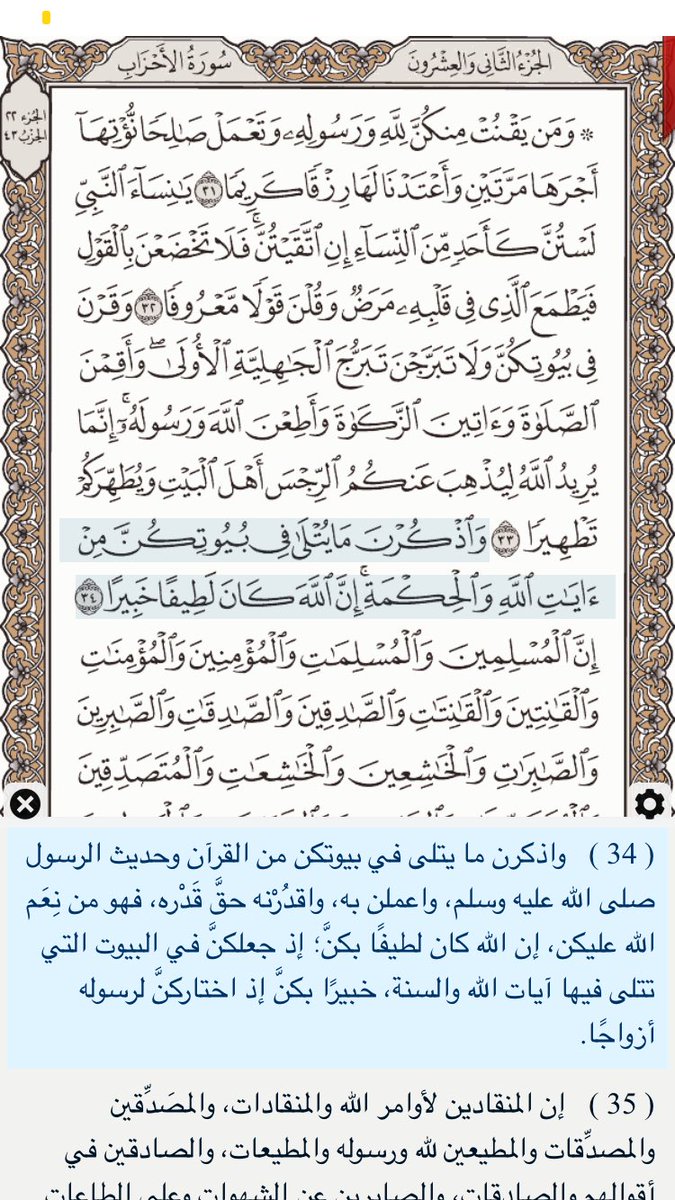 الجُزْءُ الثَّانِي وَالعِشْرُونَ
سُورَةُ الأَحْزَابِ
الجُزء ٢٢
الحِزب ٤٣
۞ وَمَن يَقْنُتْ مِنكُنَّ لِلَّهِ وَرَسُولِهِۦ وَتَعْمَلْ صَٰلِحًا نُّؤْتِهَآ
أَجْرَهَا مَرَّتَيْنِ وَأَعْتَدْنَا لَهَا رِزْقًا كَرِيمًا ٣١ يَٰنِسَآءَ ٱلنَّبِيِّ
لَسْتُنَّ كَأَحَدٍ مِّنَ ٱلنِّسَآءِ إِنِ ٱتَّقَيْتُنَّۚ فَلَا تَخْضَعْنَ بِٱلْقَوْلِ
فَيَطْمَعَ ٱلَّذِى فِى قَلْبِهِۦ مَرَضٌ وَقُلْنَ قَوْلًا مَّعْرُوفًا ٣٢ وَقَرْنَ
فِى بُيُوتِكُنَّ وَلَا تَبَرَّجْنَ تَبَرُّجَ ٱلْجَٰهِلِيَّةِ ٱلْأُولَىٰۖ وَأَقِمْنَ
ٱلصَّلَوٰةَ وَءَاتِينَ ٱلزَّكَوٰةَ وَأَطِعْنَ ٱللَّهَ وَرَسُولَهُۥٓۚ إِنَّمَا
يُرِيدُ ٱللَّهُ لِيُذْهِبَ عَنكُمُ ٱلرِّجْسَ أَهْلَ ٱلْبَيْتِ وَيُطَهِّرَكُمْ
تَطْهِيرًا ٣٣ وَٱذْكُرْنَ مَا يُتْلَىٰ فِى بُيُوتِكُنَّ مِنْ
ءَايَٰتِ ٱللَّهِ وَٱلْحِكْمَةِۚ إِنَّ ٱللَّهَ كَانَ لَطِيفًا خَبِيرًا ٣٤
إِنَّ ٱلْمُسْلِمِينَ وَٱلْمُسْلِمَٰتِ وَٱلْمُؤْمِنِينَ وَٱلْمُؤْمِنَٰتِ
وَٱلْقَٰنِتِينَ وَٱلْقَٰنِتَٰتِ وَٱلصَّٰدِقِينَ وَٱلصَّٰدِقَٰتِ وَٱلصَّٰبِرِينَ
وَٱلصَّٰبِرَٰتِ وَٱلْخَٰشِعِينَ وَٱلْخَٰشِعَٰتِ وَٱلْمُتَصَدِّقِينَ
( 34 ) واذكرن ما يتلى في بيوتكن من القرآن وحديث الرسول
صلى الله عليه وسلم، واعملن به، واقدُرْنه حقَّ قَدْره، فهو من نِعَم
الله عليكن، إن الله كان لطيفًا بكنَّ؛ إذ جعلكنَّ في البيوت التي
تتلى فيها آيات الله والسنة، خبيرًا بكنَّ إذ اختاركنَّ لرسوله
أزواجًا.
( 35 ) إن المنقادين لأوامر الله والمنقادات، والمصَدِّقين
والمصدِّقات والمطيعين لله ورسوله والمطيعات، والصادقين في
أقوالهم والصادقات، والصابرين عن الشهوات وعلى الطاعات